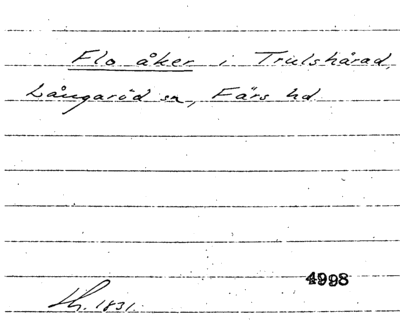 Flo åker i Trulshärad,
Långaröd sn, Färs hd
4998
Lh. 1831.